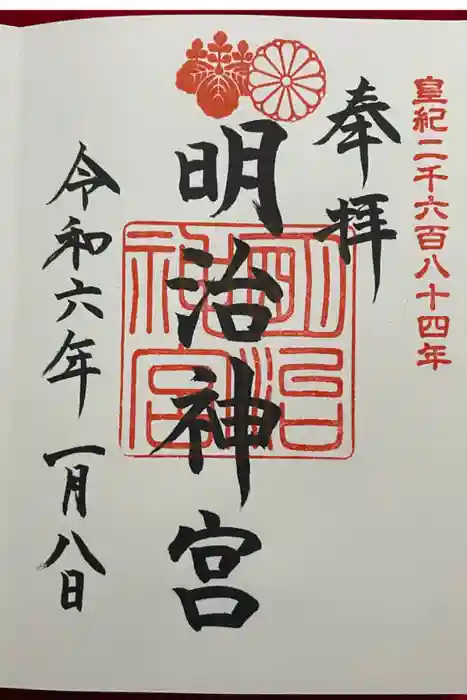 皇紀二千六百八十四年
奉拝
明治神宮
明治神宮
令和六年一月八日